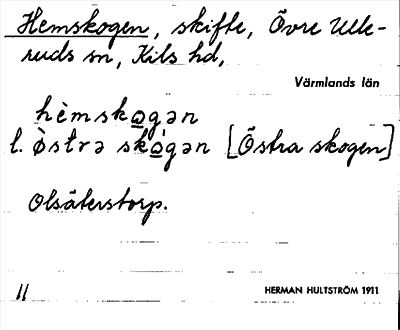 Hemskogen, skifte, Övre Ulle-
ruds sn, Kils hd,
Värmlands län
hèmsko̲gən
l. ø̀strə skó̲gən [Östra skogen]
Olsäterstorp.
11
HERMAN HULTSTRÖM 1911